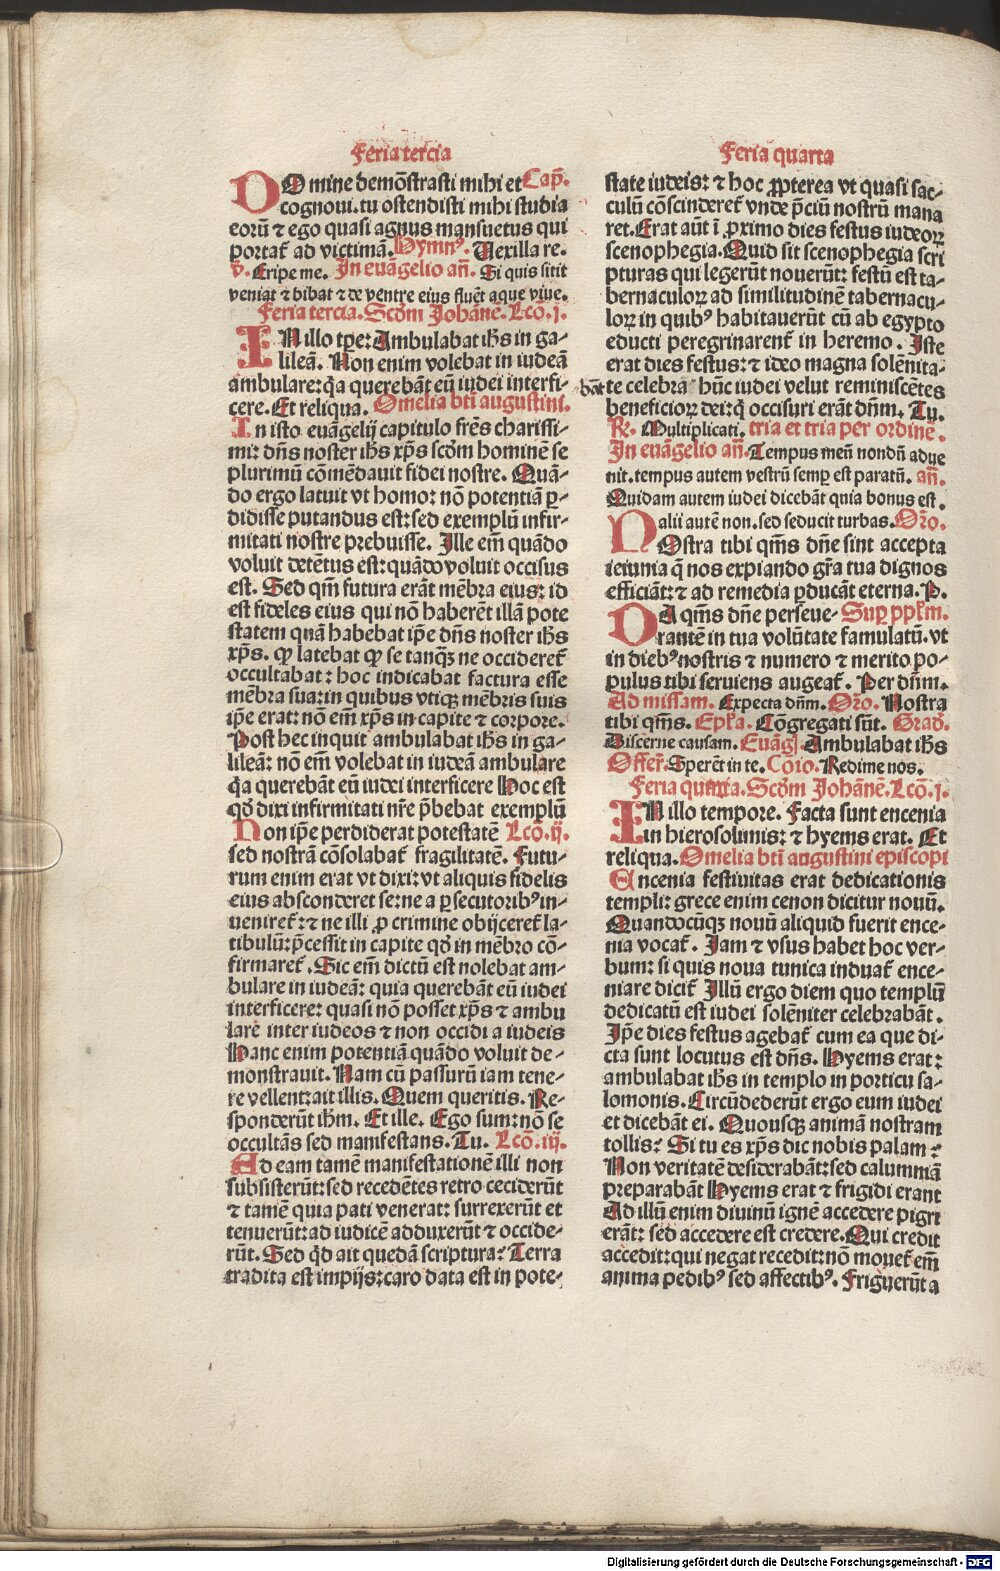 Feria tercia
DOmine demōstrasti mihi et Cap̄.
cognoui. tu ostendisti mihi studia
eorū ⁊ ego quasi agnus mansuetus qui
portat᷑ ad victimā. Hymnꝰ. Uexilla re.
v̄. Eripe me. In euāgelio añ. Si quis sitit
veniat ⁊ bibat ⁊ de ventre eius fluēt aque viue.
Feria tercia. Scḋm Johānē. Lcō. j.
IN illo tꝑe: Ambulabat ih̄s in ga⸗
lileā. Non enim volebat in iudeā
ambulare: q̄a querebāt eū iudei interfi⸗
cere. Et reliqua. Omelia bt̄i augustini.
In isto euāgelij capitulo fr̄es charissi⸗
mi: dn̄s noster ih̄s xp̄s scḋm hominē se
plurimū cōmēdauit fidei nostre. Quā⸗
do ergo latuit vt homo: nō potentiā ꝑ⸗
didisse putandus est: sed exemplū infir⸗
mitati nostre prebuisse. Ille em̄ quādo
voluit detētus est: quādo voluit occisus
est. Sed qm̄ futura erāt mēbra eius: id
est fideles eius qui nō haberēt illā pote
statem quā habebat ip̄e dn̄s noster ih̄s
xp̄s. ꝙ latebat ꝙ se tanqꝫ ne occideret᷑
occultabat: hoc indicabat factura esse
mēbra sua: in quibus vtiqꝫ mēbris suis
ip̄e erat: nō em̄ xp̄s in capite ⁊ corpore.
Post hec inquit ambulabat ih̄s in ga⸗
lileā: nō em̄ volebat in iudeā ambulare
q̄a querebāt eū iudei interficere Hoc est
qḋ dixi infirmitati nr̄e p̄bebat exemplū
Non ip̄e perdiderat potestatē Lcō. ij.
sed nostrā cōsolabat᷑ fragilitatē. Futu⸗
rum enim erat vt dixi: vt aliquis fidelis
eius absconderet se: ne a ꝑsecutoribꝰ in⸗
veniret᷑: ⁊ ne illi ꝓ crimine obijceret᷑ la⸗
tibulū: p̄cessit in capite qḋ in mēbro cō⸗
firmaret᷑. Sic em̄ dictū est nolebat am⸗
bulare in iudeā: quia querebāt eū iudei
interficere: quasi nō posset xp̄s ⁊ ambu
lare inter iudeos ⁊ non occidi a iudeis
Hanc enim potentiā quādo voluit de⸗
monstrauit. Nam cū passurū iam tene⸗
re vellent: ait illis. Quem queritis. Re⸗
sponderūt ihm̄. Et ille. Ego sum: nō se
occultās sed manifestans. Tu. Lcō. iij.
Ad eam tamē manifestationē illi non
subsisterūt: sed recedētes retro ceciderūt
⁊ tamē quia pati venerat: surrexerūt et
tenuerūt: ad iudicē adduxerūt ⁊ occide⸗
rūt. Sed qḋ ait quedā scriptura? Terra
tradita est impijs: caro data est in pote⸗
Feria quarta
state iudeis: ⁊ hoc ꝓpterea vt quasi sac⸗
culū cōscinderet᷑ vnde p̄ciū nostrū mana
ret. Erat aūt ī ꝓximo dies festus iudeoꝝ
scenophegia. Quid sit scenophegia scri
pturas qui legerūt nouerūt: festū est ta⸗
bernaculoꝝ ad similitudinē tabernacu⸗
loꝝ in quibꝰ habitauerūt cū ab egypto
educti peregrinarent᷑ in heremo. Iste
erat dies festus: ⁊ ideo magna solēnita⸗
te celebrabāt hūc iudei velut reminiscētes
beneficioꝝ dei: q̇ occisuri erāt dn̄m. Tu.
℟. Multiplicati. tria et tria per ordinē.
In euāgelio añ. Tempus meū nondū adue
nit. tempus autem vestrū semꝑ est paratū. añ.
Quidam autem iudei dicebāt quia bonus est.
alii autē non. sed seducit turbas. Orō.
NOstra tibi qm̄s dn̄e sint accepta
ieiunia q̄ nos expiando gr̄a tua dignos
efficiāt: ⁊ ad remedia ꝑducāt eterna. P.
DA qm̄s dn̄e perseue⸗ Suꝑ pplm̄.
rantē in tua volūtate famulatū. vt
in diebꝰ nostris ⁊ numero ⁊ merito po⸗
pulus tibi seruiens augeat᷑. Per dn̄m.
Ad missam. Expecta dn̄m. Orō. Nostra
tibi qm̄s. Epl̄a. Cōgregati sūt. Grad̄.
Discerne causam. Euāgl̄. Ambulabat ih̄s
Offer̄. Sperēt in te. Cōio. Redime nos.
Feria quarta. Scḋm Johānē. Lcō. j.
IN illo tempore. Facta sunt encenia
in hierosolimis: ⁊ hyems erat. Et
reliqua. Omelia bt̄i augustini episcopi
Encenia festiuitas erat dedicationis
templi: grece enim cenon dicitur nouū.
Quandocūqꝫ nouū aliquid fuerit ence⸗
nia vocat᷑. Iam ⁊ vsus habet hoc ver⸗
bum: si quis noua tunica induat᷑ ence⸗
niare dicit᷑ Illū ergo diem quo templū
dedicatū est iudei solēniter celebrabāt.
Ip̄e dies festus agebat᷑ cum ea que di⸗
cta sunt locutus est dn̄s. Hyems erat:
ambulabat ih̄s in templo in porticu sa⸗
lomonis. Circūdederūt ergo eum iudei
et dicebāt ei. Quousqꝫ animā nostram
tollis? Si tu es xp̄s dic nobis palam?
Non veritatē desiderabāt: sed calumniā
preparabāt Hyems erat ⁊ frigidi erant
Ad illū enim diuinū ignē accedere pigri
erāt: sed accedere est credere. Qui credit
accedit: qui negat recedit: nō mouet᷑ em̄
anima pedibꝰ sed affectibꝰ. Friguerūt a
Digitalisierung gefördert durch die Deutsche Forschungsgemeinschaft - DFG